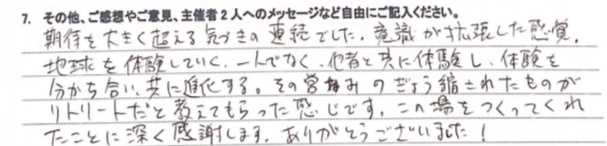 7. その他、ご感想やご意見、主催者2人へのメッセージなど自由にご記入ください。
期待を大きく超える気づきの連続でした。意識が拡張した感覚。
地球を体験していく、一人でなく、他者と共に体験し、体験を
分かち合い、共に進化する。その営みのぎょう縮されたものが
リトリートだと教えてもらった感じです。この場をつくってくれ
たことに深く感謝します。ありがとうございました!